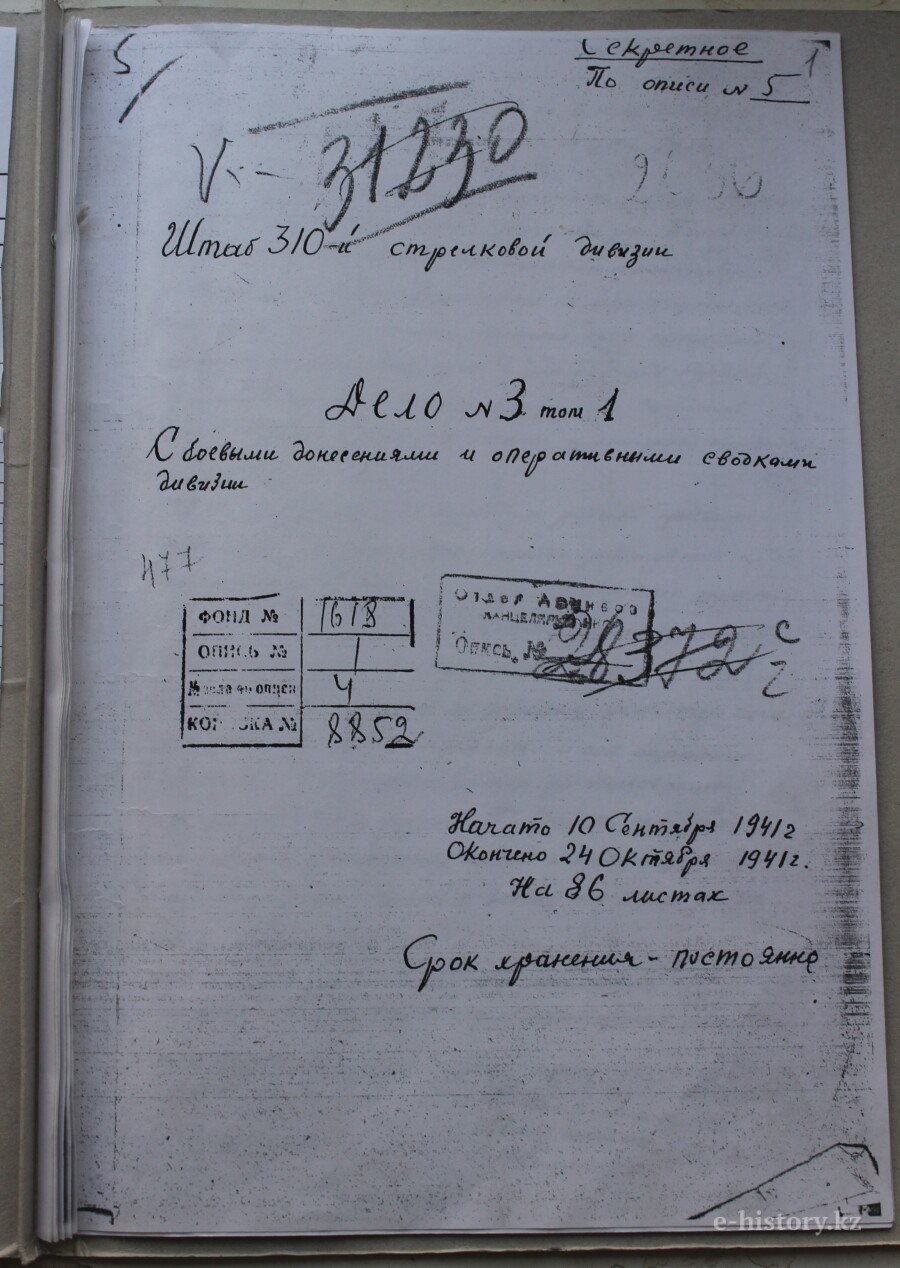 5
Секретное 1
По описи № 5
V 31230
Штаб 310-й стрелковой дивизии
Дело №3 том 1
С боевыми донесениями и оперативными сводками
дивизии
477
ФОНД № 1618
ОПИСЬ № 1
№ дела по описи 4
КОРОБКА № 8852
Отдел Архивов
Опись № 28372 с
Начато 10 Сентября 1941г
Окончено 24 Октября 1941г.
На 86 листах
Срок хранения - постоянно
e-history.kz